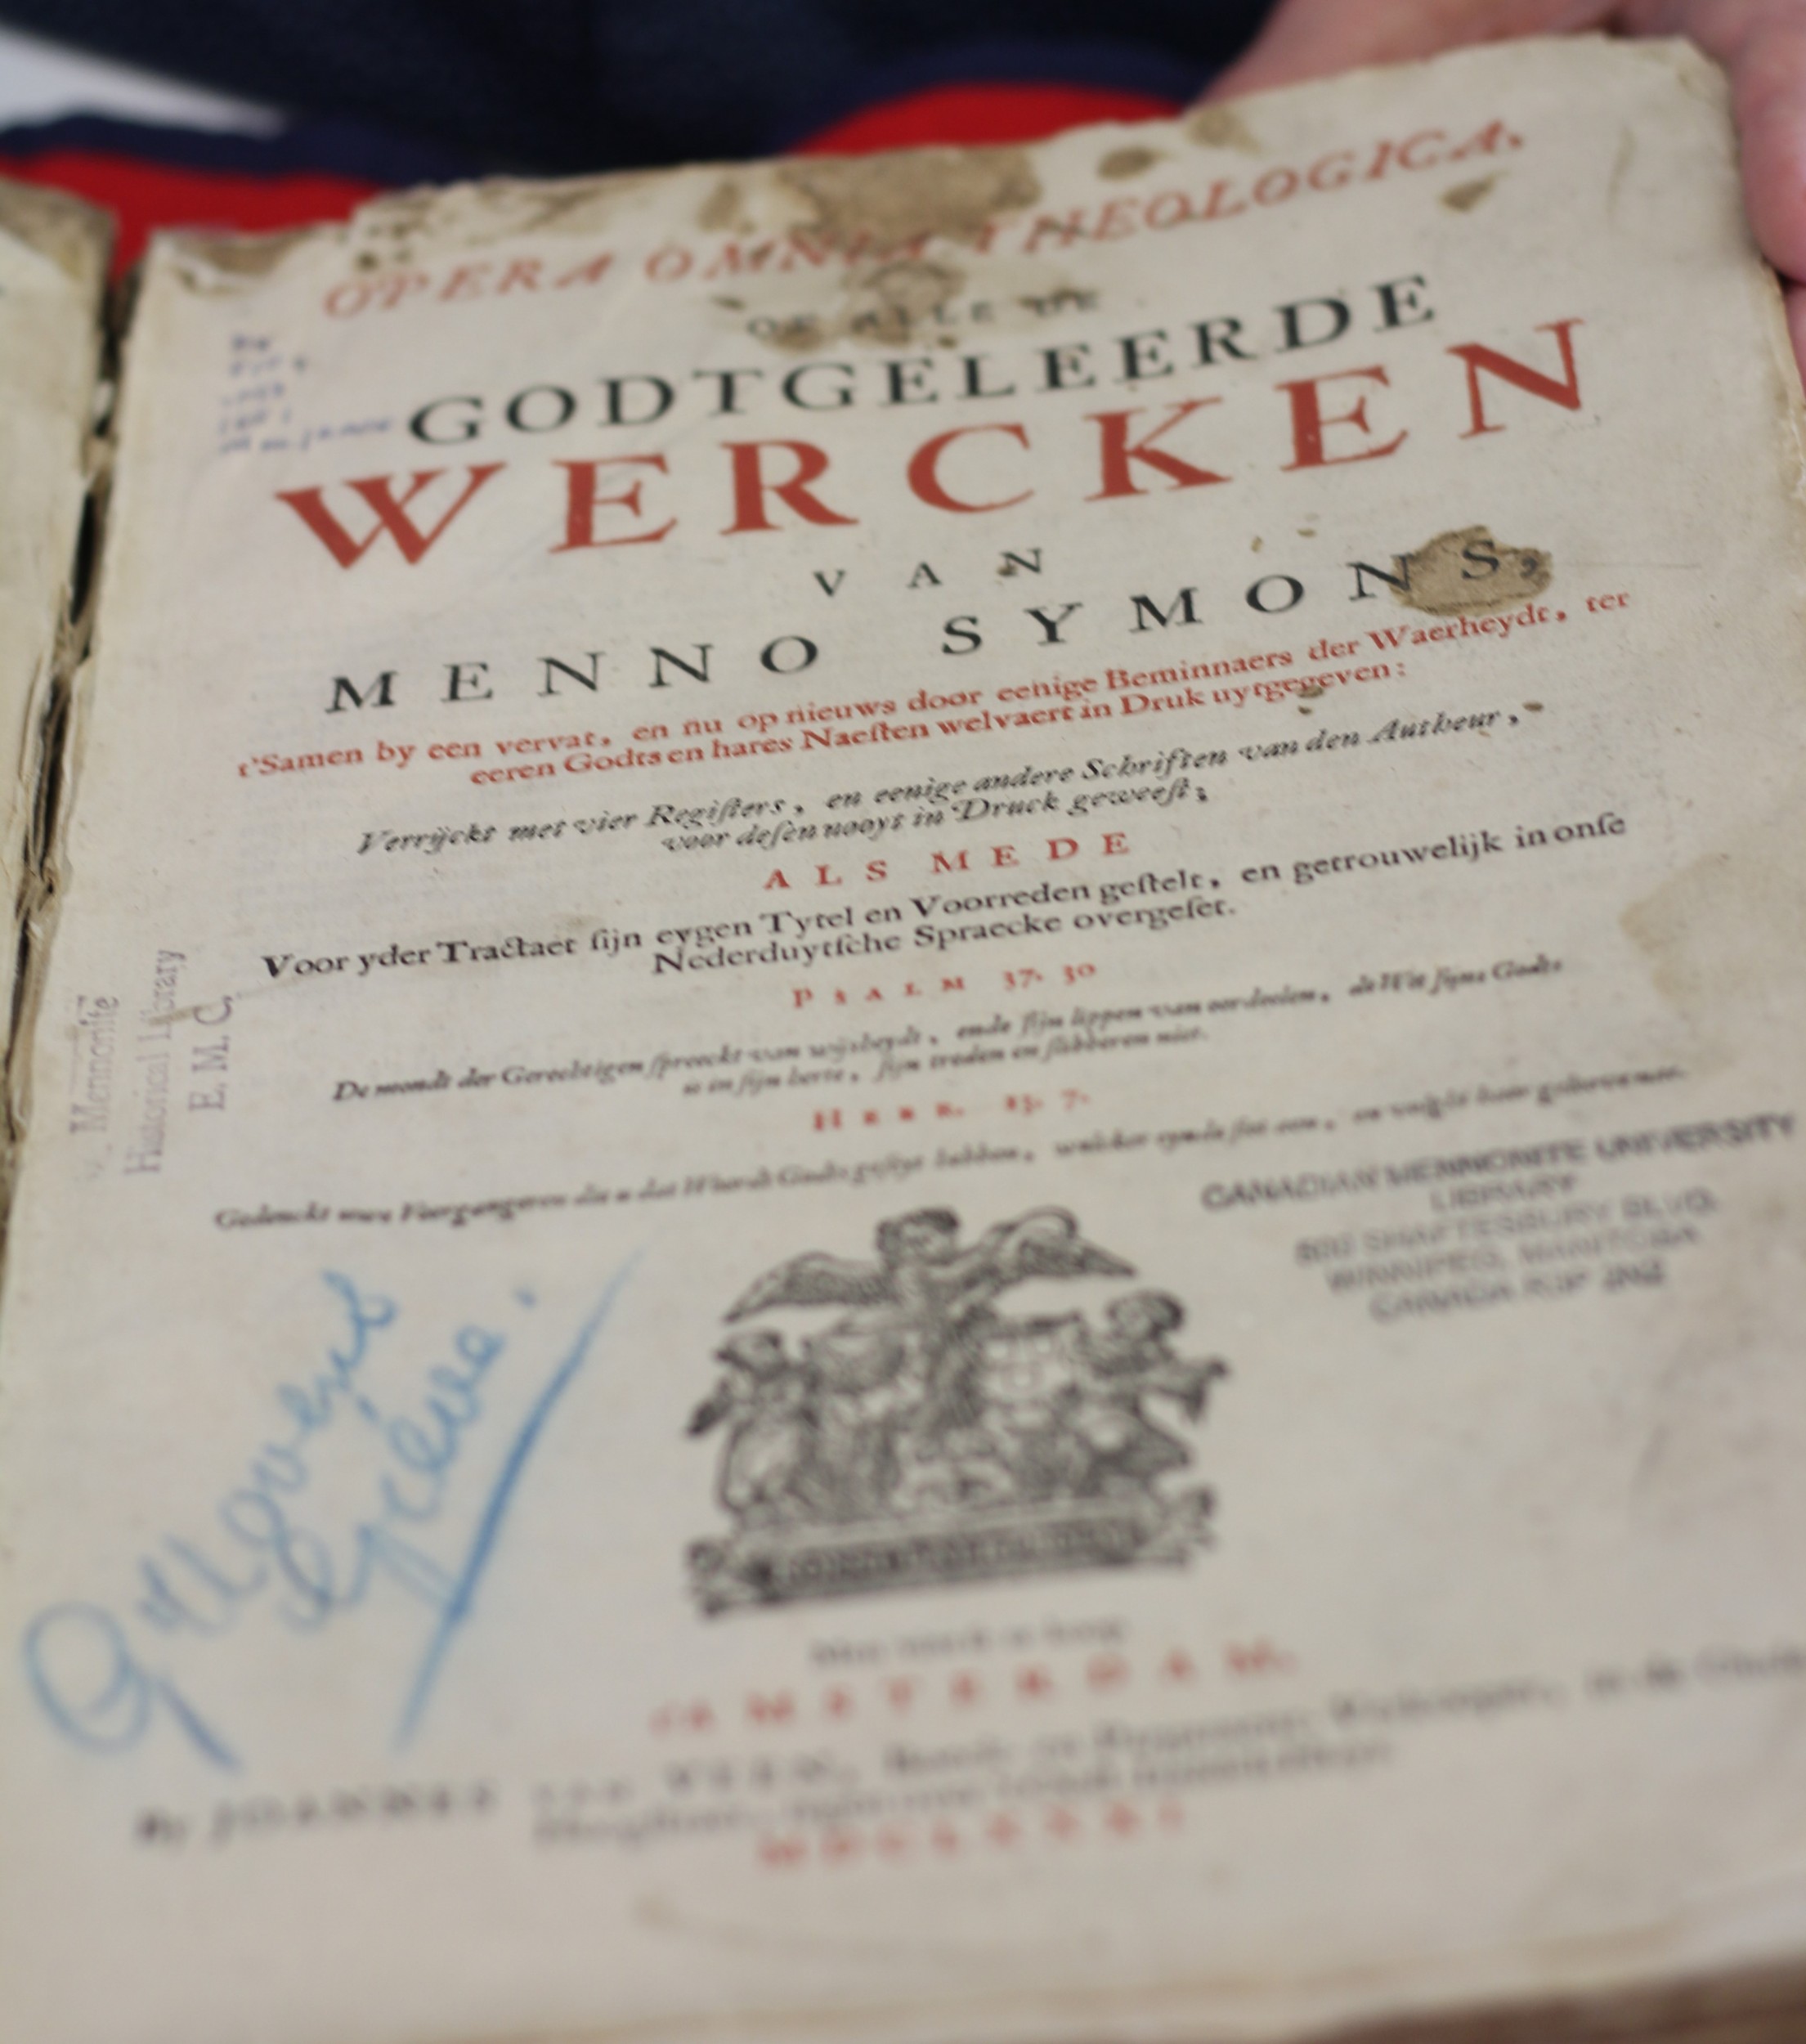 OPERA OMNIA THEOLOGICA,
OF ALLE DE
GODTGELEERDE
WERCKEN
VAN
MENNO SYMONS,
t'Samen by een vervat, en nu op nieuws door eenige Beminnaers der Waerheydt, ter
eeren Godts en hares Naeſten welvaert in Druk uytgegeven:
Verrijckt met vier Regiſters, en eenige andere Schriften van den Autheur,
voor deſen nooyt in Druck geweeſt;
ALS MEDE
Voor yder Tractaet ſijn eygen Tytel en Voorreden geſtelt, en getrouwelijk in onſe
Nederduytſche Spraecke overgeſet.
PSALM 37. 30
De mondt der Gerechtigen ſpreeckt van wijsheydt, ende ſijn lippen van oordeelen, de Wet ſijns Godts
is in ſijn herte, ſijn treden en ſlibberen niet.
HEBR. 13. 7.
Gedenckt uwe Voorgangeren die u dat Woordt Godts
Mennonite
Historical Library
E. M. C.
CANADIAN MENNONITE UNIVERSITY
LIBRARY
500 SHAFTESBURY BLVD.
WINNIPEG, MANITOBA
CANADA R3P 2N2
AMSTERDAM.
By JOANNES van VEEN,
MDCLXXXI